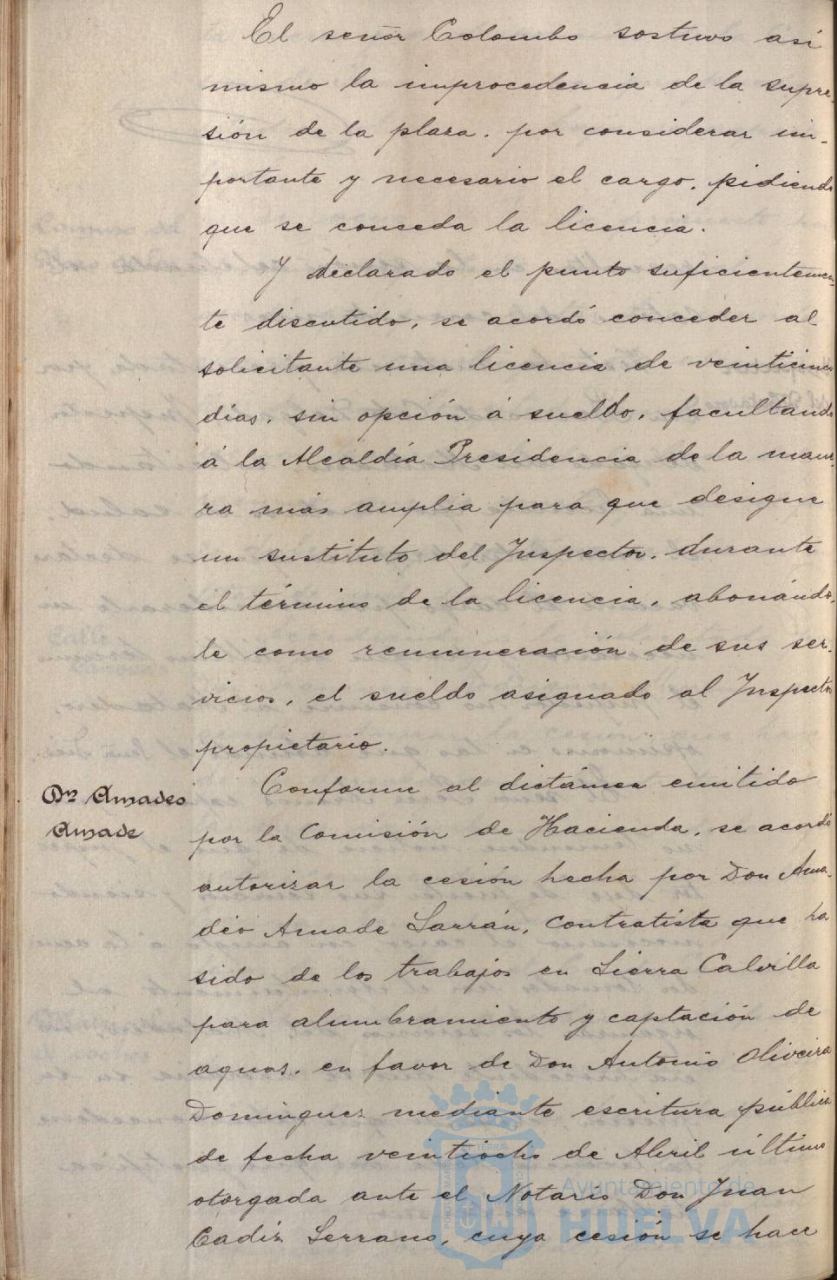 El señor Colombo sostuvo así
mismo la improcedencia de la supre
sión de la plaza. por considerar im-
portante y necesario el cargo, pidiendo
que se conceda la licencia.
Y declarado el punto suficientemen-
te discutido, se acordó conceder al
solicitante una licencia de veinticinco
días, sin opción á sueldo, facultando
á la Alcaldía Presidencia de la mane-
ra más amplia para que designe
un sustituto del Inspector, durante
el término de la licencia, abonándo-
le como remuneración de sus ser-
vicios, el sueldo asignado al Inspector
propietario.
Dn Amadeo
Amade
Conforme al dictámen emitido
por la Comisión de Hacienda, se acordó
autorizar la cesión hecha por Don Ama-
deo Amade Sarrán, contratista que ha
sido de los trabajos en Sierra Calvilla
para alumbramiento y captación de
aguas, en favor de Don Antonio Oliveira
Domínguez mediante escritura pública
de fecha veintiocho de Abril último
otorgada ante el Notario Don Juan
Cadiz Serrano, cuya cesión se hace
Ayuntamiento de
HUELVA